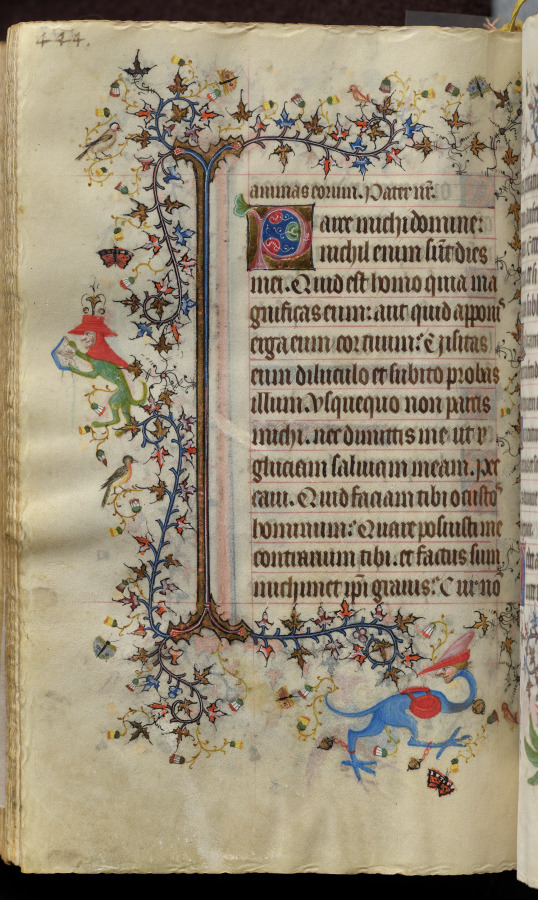 444.
animas eorum. Pater nr̄.
Parce michi domine:
nichil enim sūt dies
mei. Quid est homo quia ma
gnificas eum: aut quid apponis
erga eum cor tuum: Visitas
eum diluculo et subito probas
illum. Vsquequo non parcis
michi. nec dimittis me ut
gluciam saliuam meam. pec
caui. Quid faciam tibi o custos
hominum: Quare posuisti me
contrarium tibi. et factus sum
michimet ipi grauis: Cur nō